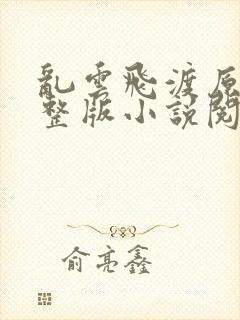 亂雲飛渡原
整版小說閱
俞亮鑫